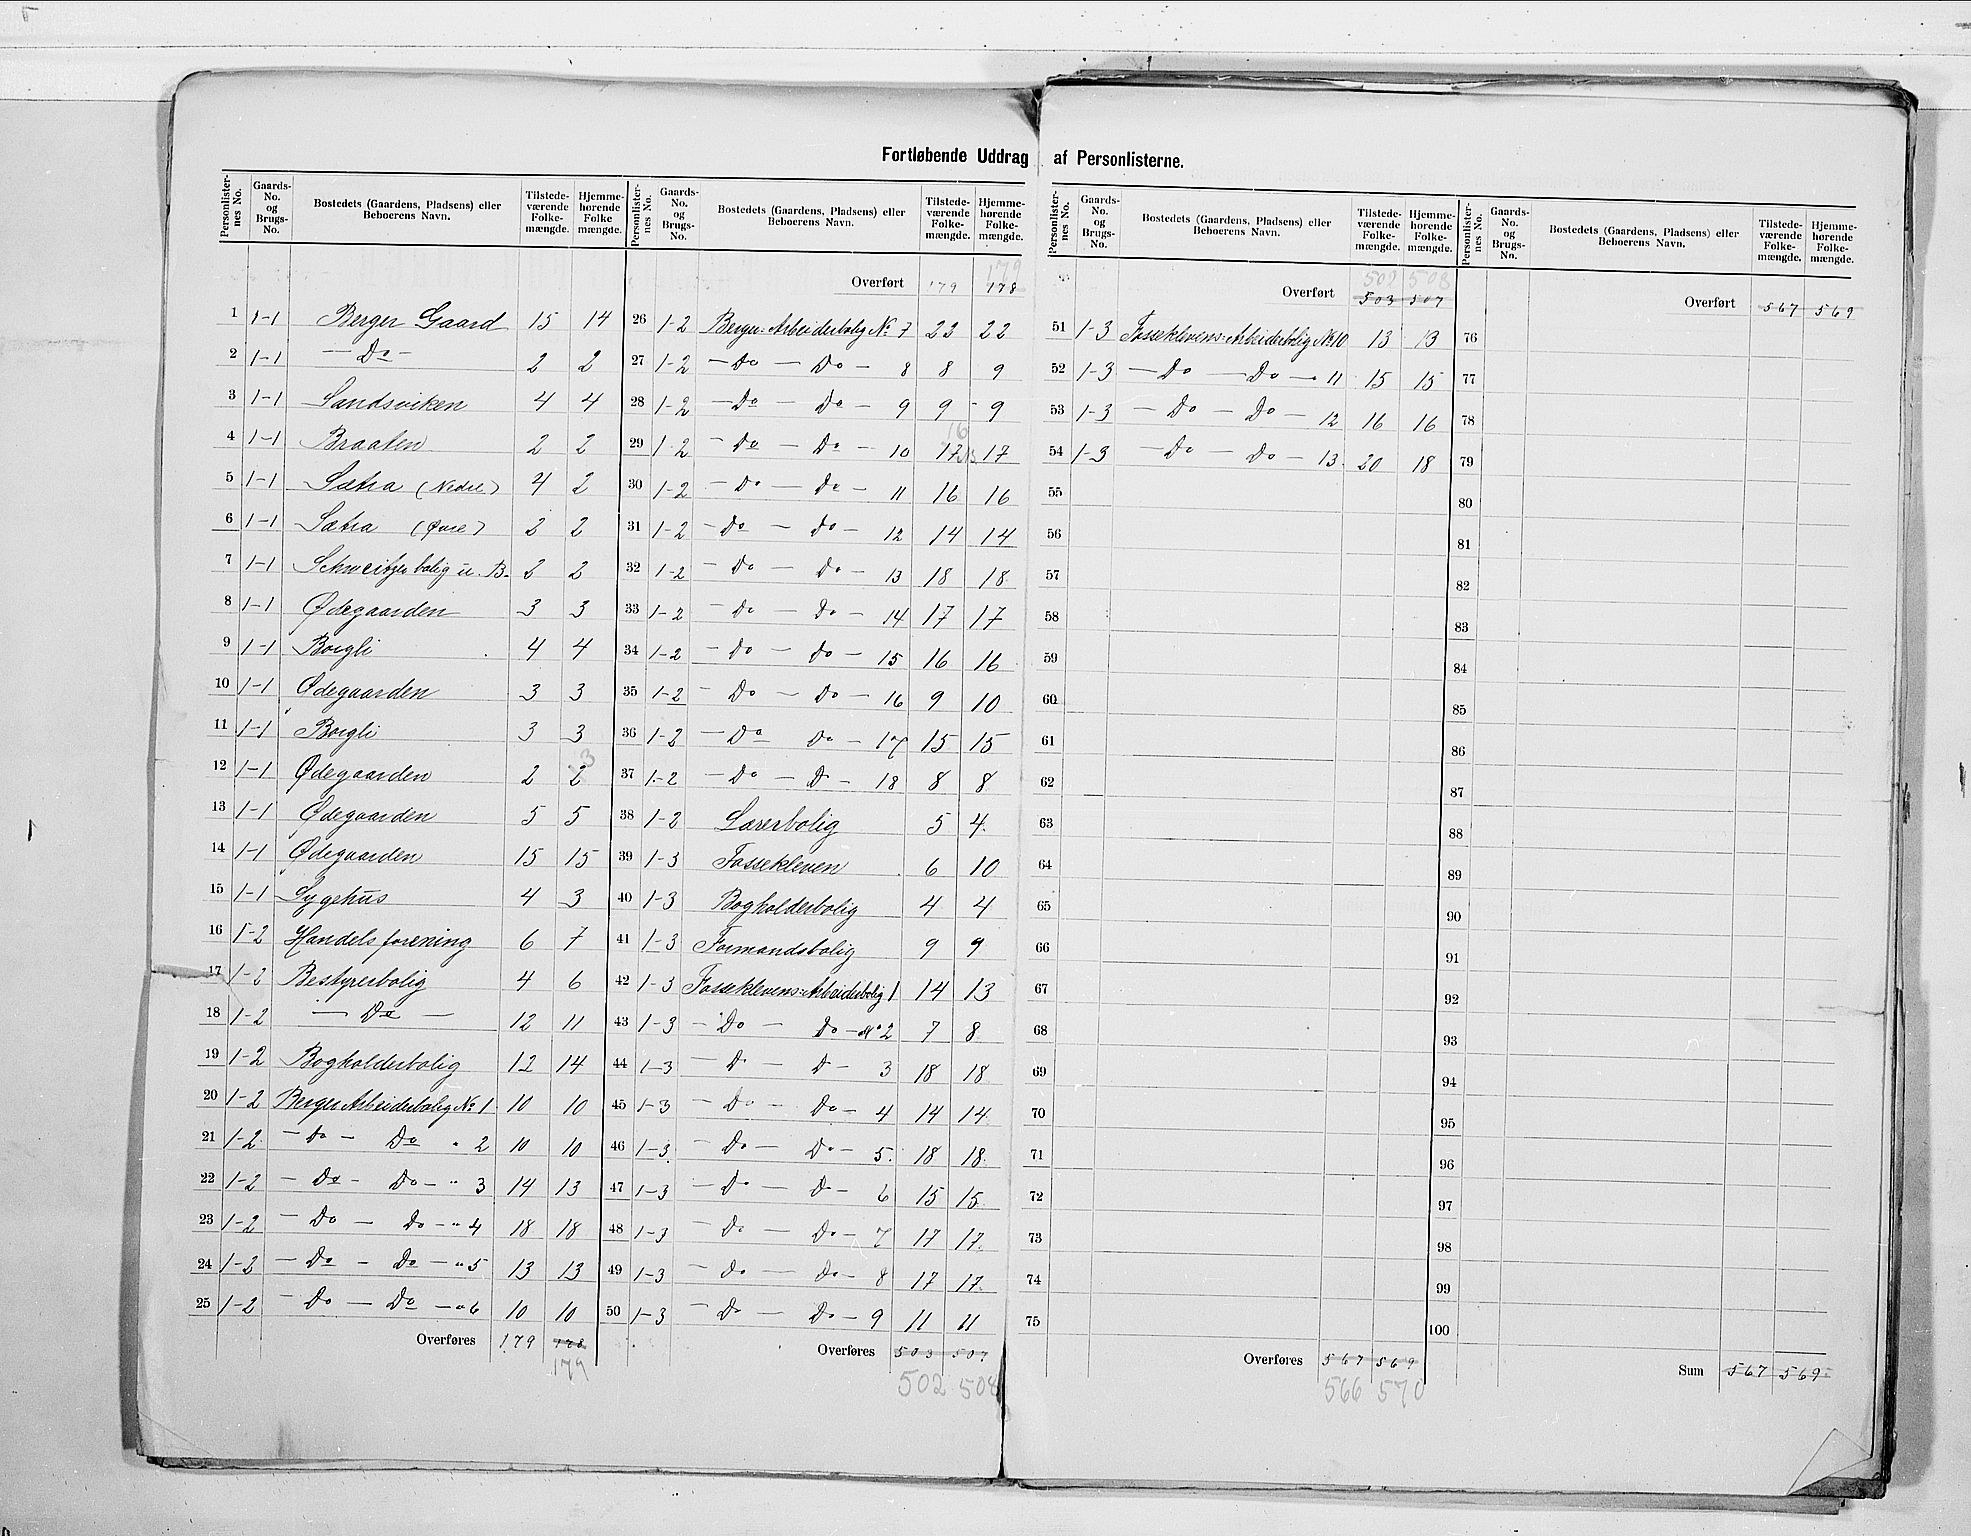 Fortløbende Uddrag af Personlisterne.
Personlister-nes No. | Gaards-No. og Brugs-No. | Bostedets (Gaardens, Pladsens) eller Beboerens Navn. | Tilstede-værende Folke-mængde. | Hjemme-hørende Folke mængde.
1 1-1 Berger Gaard 15 14
2 1-1 — Do — 2 2
3 1-1 Sandsviken 4 4
4 1-1 Braaten 2 2
5 1-1 Sætra (Nedre) 4 2
6 1-1 Sætra (Øvre) 2 2
7 1-1 Schweitzerbolig u. B. 2 2
8 1-1 Ødegaarden 3 3
9 1-1 Borgli 4 4
10 1-1 Ødegaarden 3 3
11 1-1 Borgli 3 3
12 1-1 Ødegaarden 2 2 3
13 1-1 Ødegaarden 5 5
14 1-1 Ødegaarden 15 15
15 1-1 Sygehus 4 3
16 1-2 Handelsforening 6 7
17 1-2 Bestyrerbolig 4 6
18 1-2 — Do — 12 11
19 1-2 Bogholderbolig 12 14
20 1-2 Berger Arbeiderbolig No 1 10 10
21 1-2 — Do — Do " 2 10 10
22 1-2 — Do — Do — " 3 14 13
23 1-2 — Do — Do — " 4 18 18
24 1-2 — Do — Do — " 5 13 13
25 1-2 — Do — Do — " 6 10 10
Overføres 179 178
179
Personlister-nes No. | Gaards-No. og Brugs-No. | Bostedets (Gaardens, Pladsens) eller Beboerens Navn. | Tilstede-værende Folke-mængde. | Hjemme-hørende Folke-mængde.
179
Overført 179 178
26 1-2 Berger: Arbeiderbolig No 7 22 22
27 1-2 — Do — Do — 8 8 9
28 1-2 — Do — Do — 9 9 9
29 1-2 — Do — Do — 10 17 16 17
30 1-2 — Do — Do — 11 16 16
31 1-2 — Do — Do — 12 14 14
32 1-2 — Do — Do — 13 18 18
33 1-2 — Do — Do — 14 17 17
34 1-2 — Do — Do — 15 16 16
35 1-2 — Do — Do — 16 9 10
36 1-2 — Do Do — 17 15 15
37 1-2 — Do — Do — 18 8 8
38 1-2 Lærerbolig 5 4
39 1-3 Fossekleven 6 10
40 1-3 Bogholderbolig 4 4
41 1-3 Formandsbolig 9 9
42 1-3 Fosseklevens: Arbeiderbolig 1 14 13
43 1-3 — Do — Do — No 2 7 8
44 1-3 — Do — Do — 3 18 18
45 1-3 — Do — Do — 4 14 14
46 1-3 — Do — Do — 5 18 18
47 1-3 — Do — Do — 6 15 15
48 1-3 — Do — Do — 7 17 17
49 1-3 — Do — Do — 8 17 17
50 1-3 — Do — Do — 9 11 11
Overføres 503 507
502 508
Personlister-nes No. | Gaards-No. og Brugs-No. | Bostedets (Gaardens, Pladsens) eller Beboerens Navn. | Tilstede-værende Folke-mængde. | Hjemme-hørende Folke-mængde.
502 508
Overført 503 507
51 1-3 Fosseklevens: Arbeiderbolig No 10 13 13
52 1-3 — Do — Do — " 11 15 15
53 1-3 — Do — Do — 12 16 16
54 1-3 — Do — Do — 13 20 18
55
56
57
58
59
60
61
62
63
64
65
66
67
68
69
70
71
72
73
74
75
Overføres 567 569
566 570
Personlister-nes No. | Gaards-No. og Brugs-No. | Bostedets (Gaardens, Pladsens) eller Beboerens Navn. | Tilstede-værende Folke-mængde. | Hjemme-hørende Folke-mængde.
Overført 567 569
76
77
78
79
80
81
82
83
84
85
86
87
88
89
90
91
92
93
94
95
96
97
98
99
100
Sum 567 569